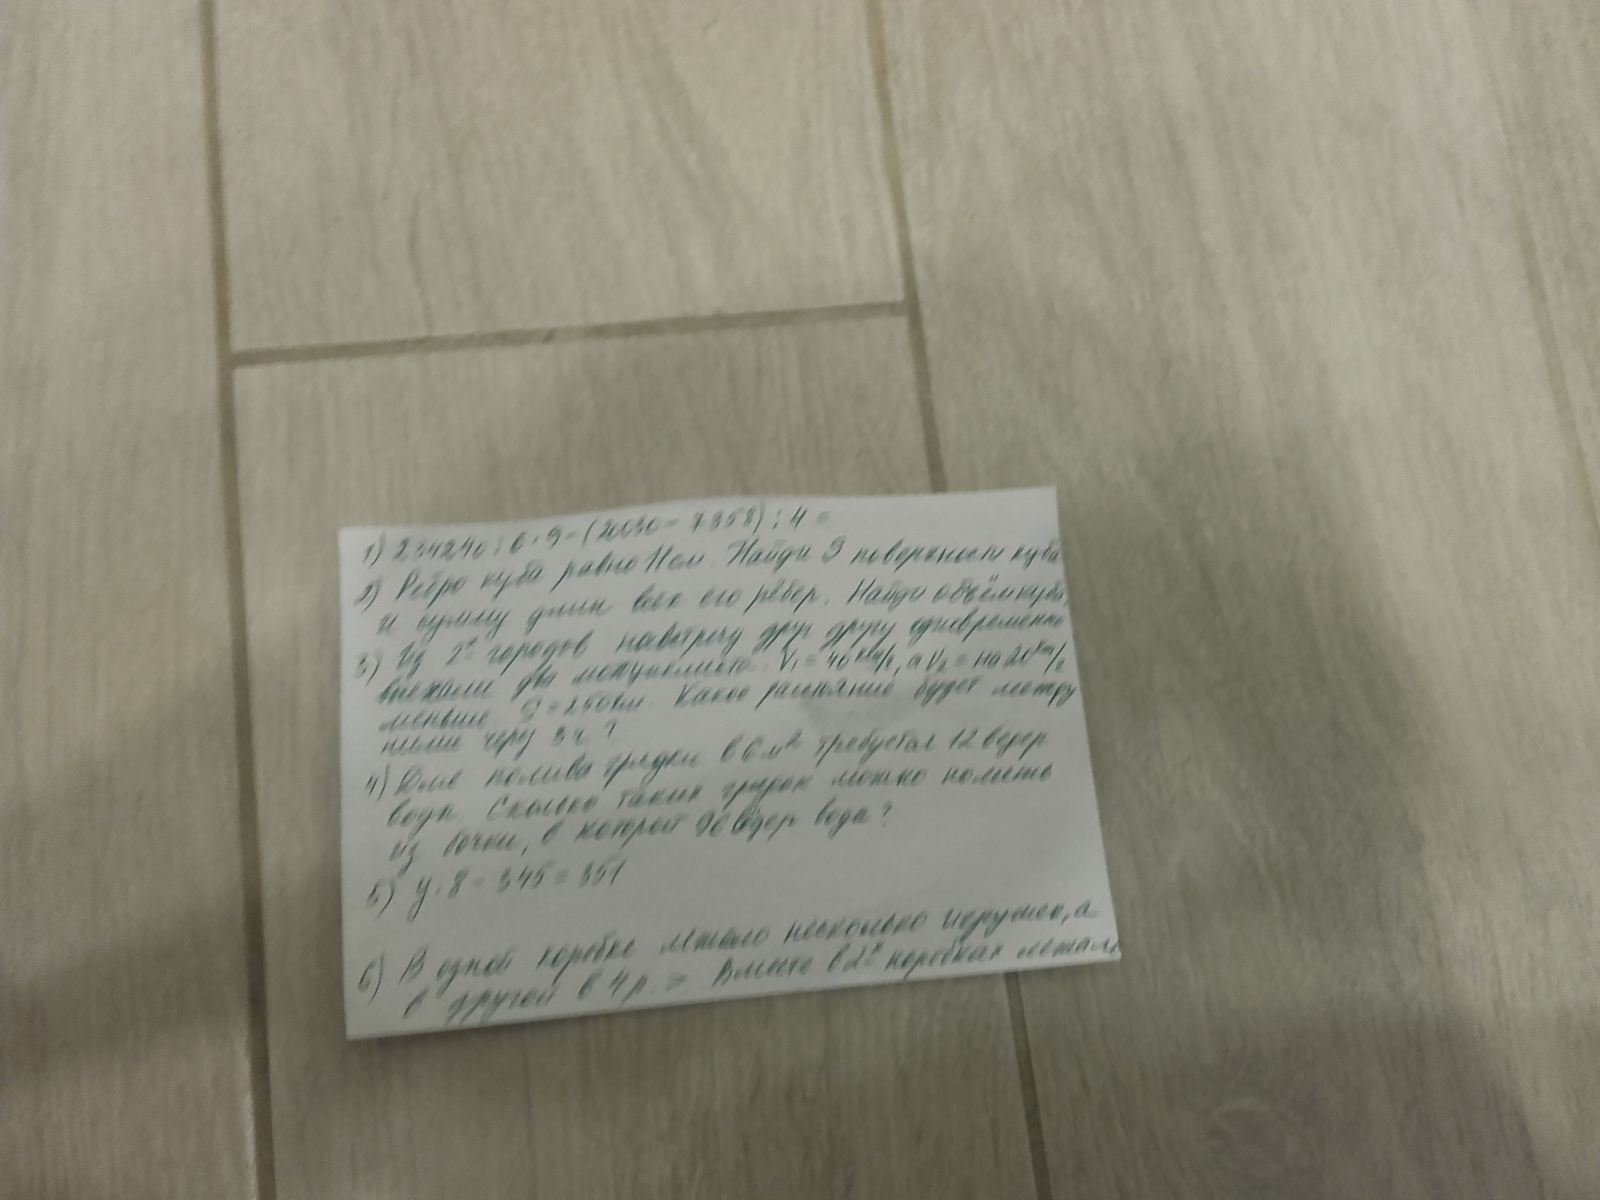 1) 234240 : 6 · 9 - (20030 - 7358) : 4 =
2) Ребро куба равно 11см. Найди S поверхности куба
и сумму длин всех его рёбер. Найди объём куба.
3) Из 2х городов навстречу друг другу одновременно
выехали два мотоциклиста. V₁ = 40 км/ч, а V₂ = на 20 км/ч
меньше. S = 250 км. Какое расстояние будет между
ними через 3 ч.?
4) Для полива грядки в 6 м² требуется 12 ведер
воды. Сколько таких грядок можно полить
из бочки, в которой 96 ведер воды?
5) у · 8 - 345 = 351
6) В одной коробке лежало несколько игрушек, а
в другой в 4 р. > Вместе в 2х коробках лежало